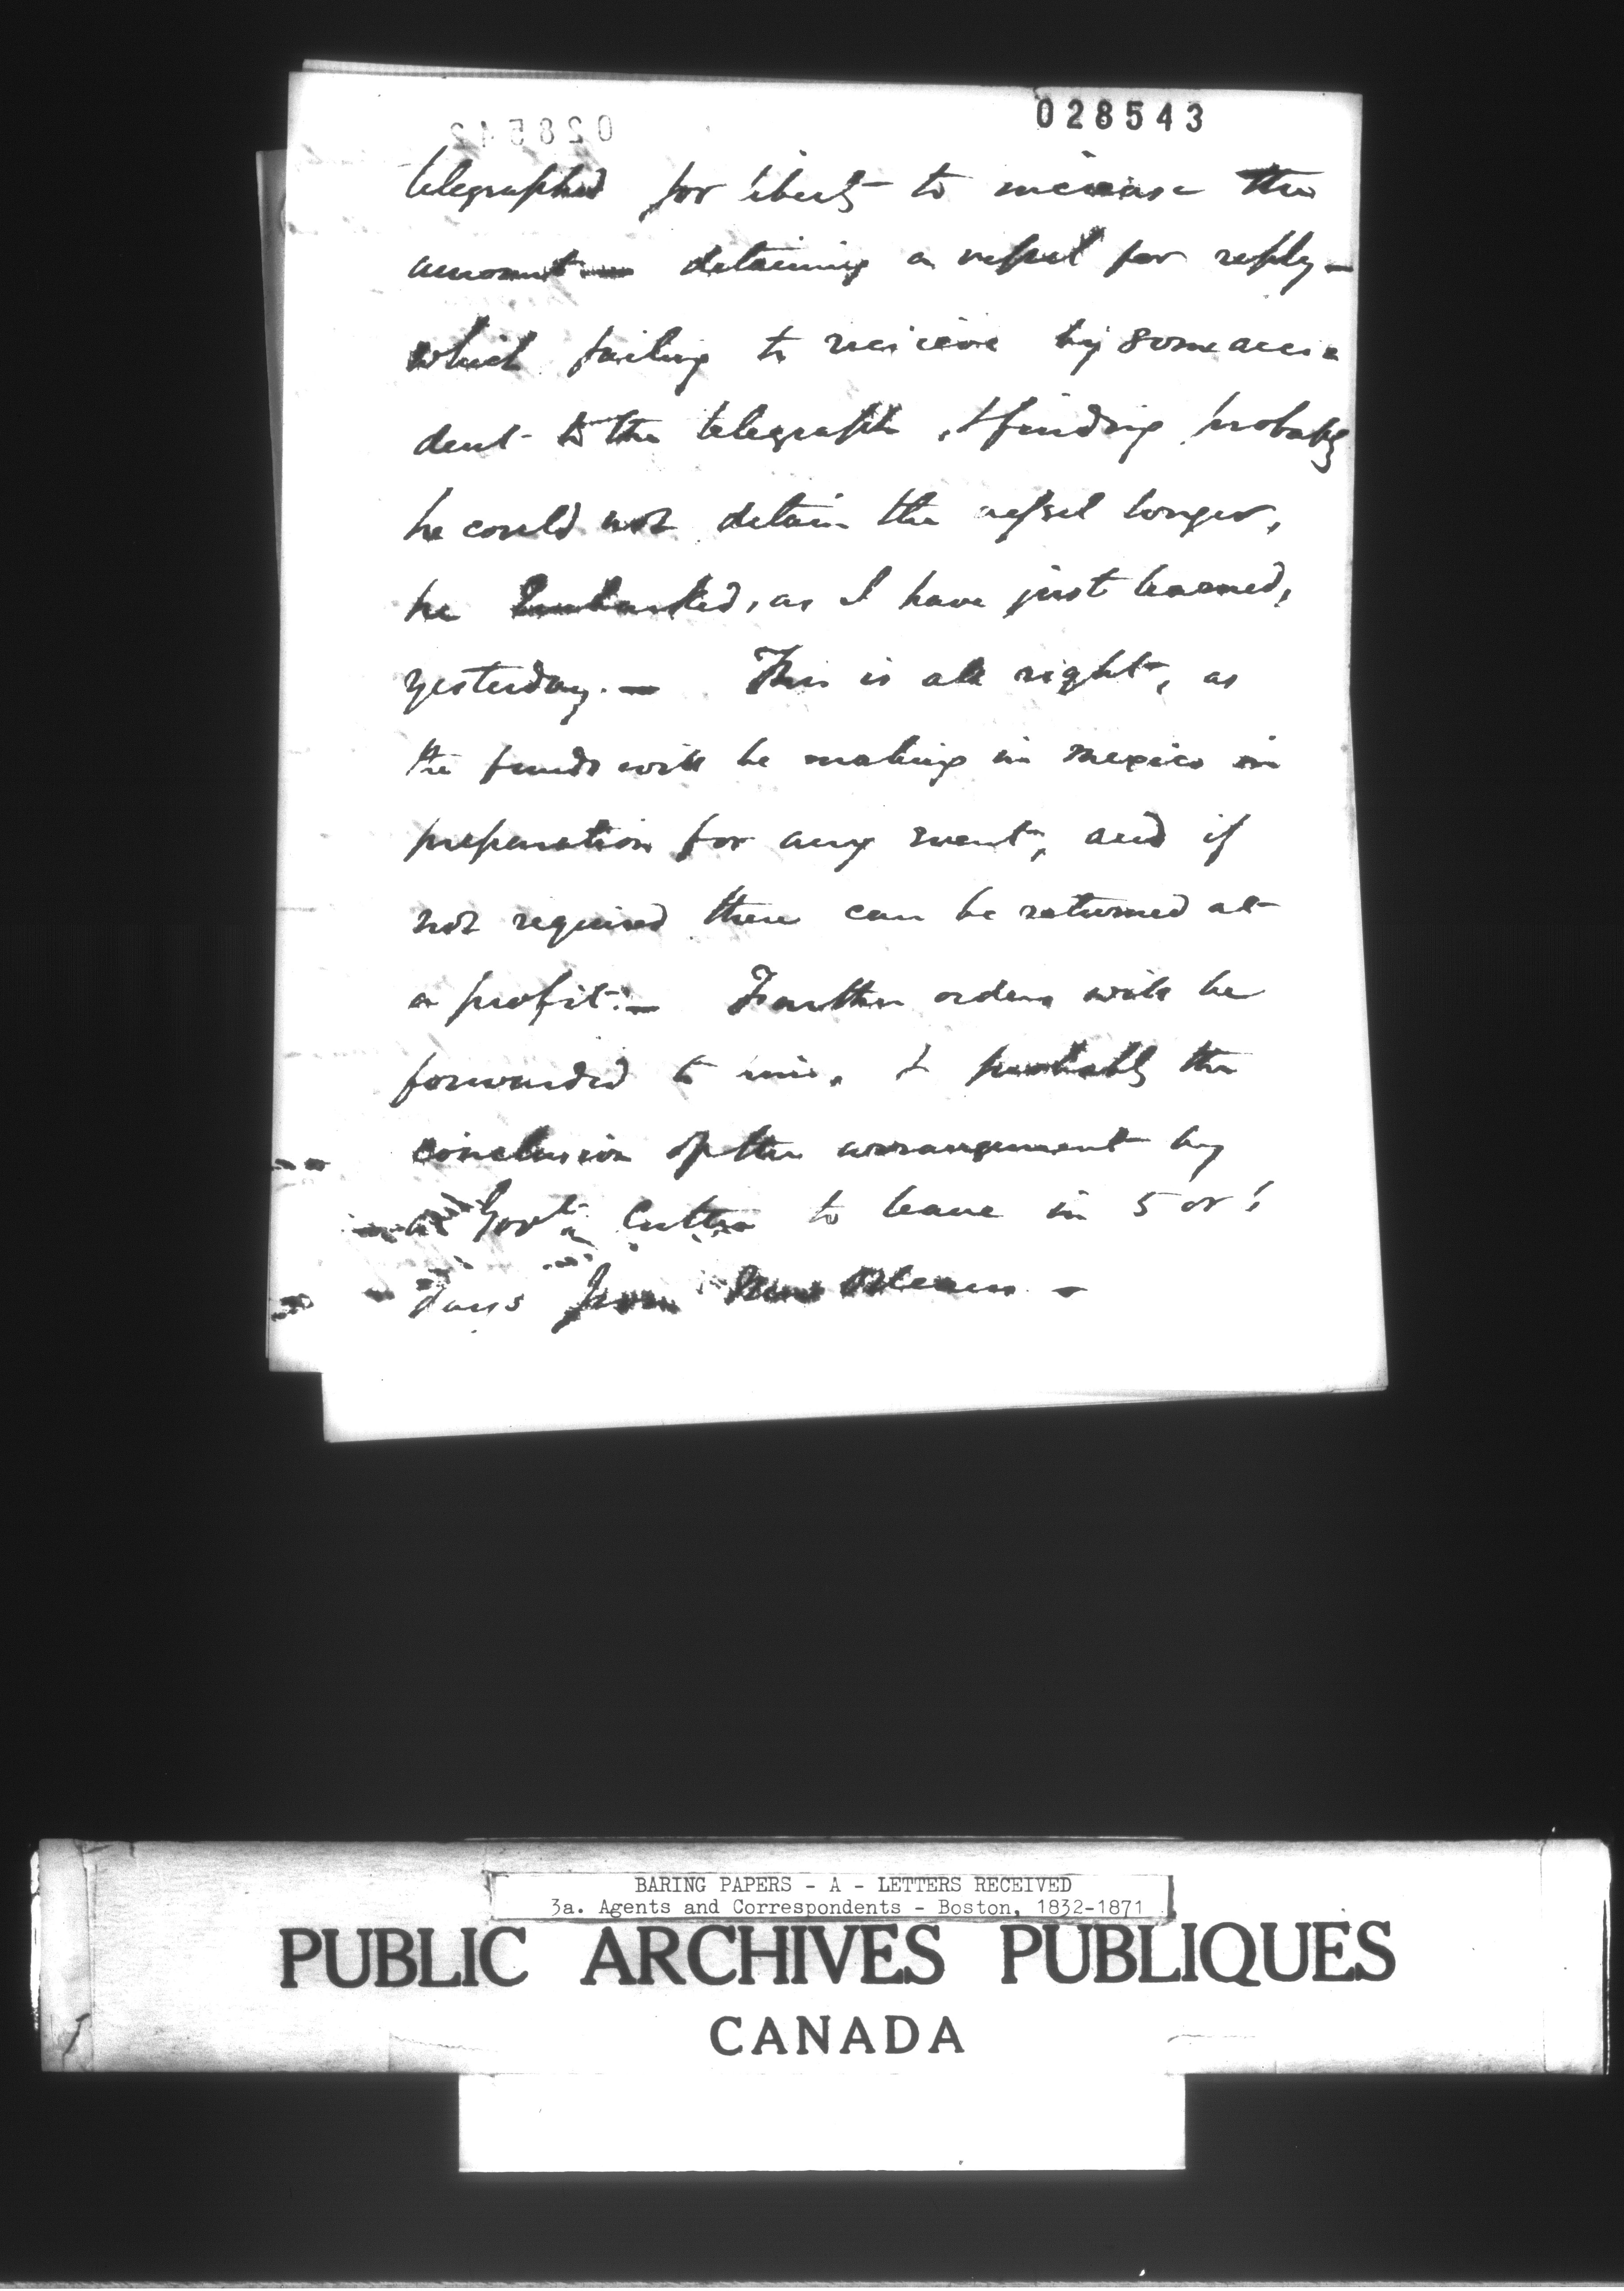 028543
telegraphed for liberty to increase the
amount — detaining a vessel for reply —
which failing to receive by some acci-
dent to the telegraph, & finding probably
he could not detain the vessel longer,
he embarked, as I have just learned,
yesterday. — This is all right, as
the funds will be making in Mexico in
preparation for any event, and if
not required there can be returned at
a profit. — Further orders will be
forwarded to him, & probably the
conclusion of the arrangement by
Govt. Cutter to leave in 5 or
days from New Orleans —
BARING PAPERS - A - LETTERS RECEIVED
3a. Agents and Correspondents - Boston, 1832-1871
PUBLIC ARCHIVES PUBLIQUES
CANADA